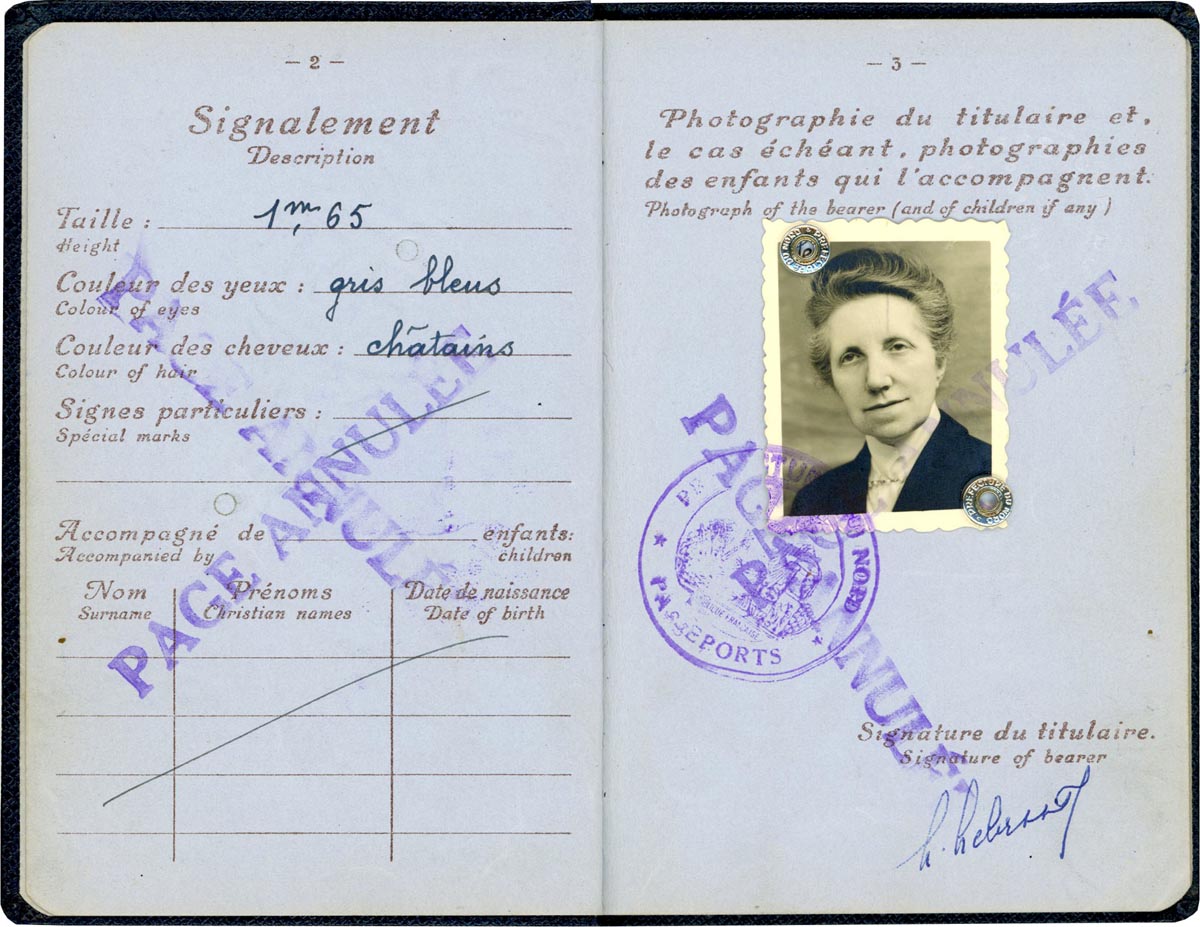 — 2 —
Signalement
Description
Taille : 1m,65
Height
Couleur des yeux : gris bleus
Colour of eyes
Couleur des cheveux : châtains
Colour of hair
Signes particuliers :
Spécial marks
Accompagné de enfants:
Accompanied by children
Nom Prénoms Date de naissance
Surname Christian names Date of birth
PAGE ANNULÉE
PAGE ANNULÉE
— 3 —
Photographie du titulaire et,
le cas échéant, photographies
des enfants qui l'accompagnent.
Photograph of the bearer (and of children if any)
PREFECTURE DU NORD
PREFECTURE DU NORD
PAGE ANNULÉE
PAGE ANNULÉE
DU NORD
PASSEPORTS
Signature du titulaire.
Signature of bearer